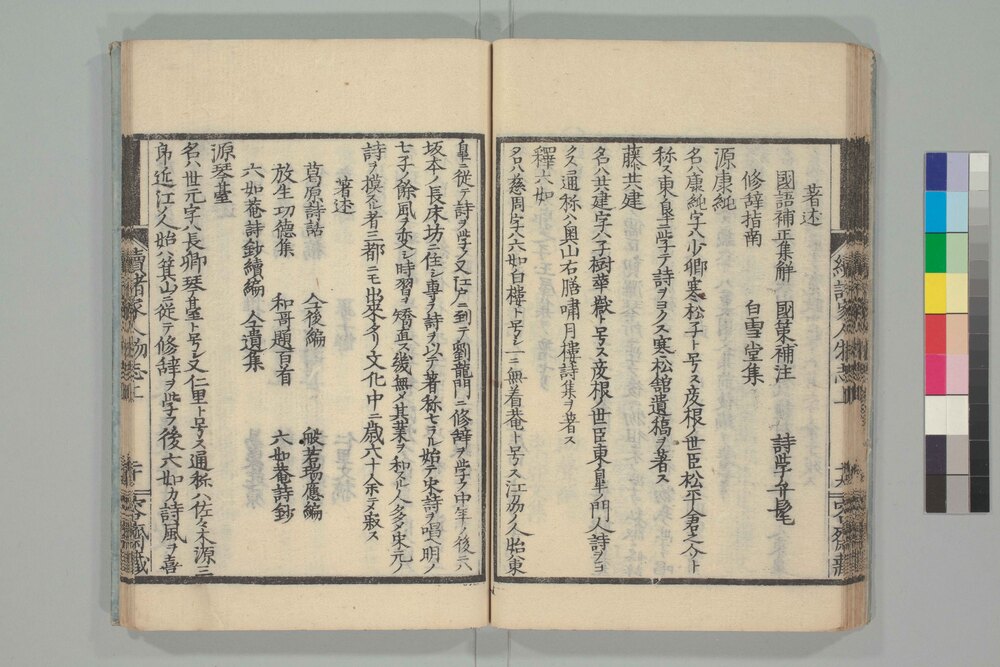 著述
國語補正集解　國策補注　詩学弁髦
修辞指南　白雪堂集
源康純
名ハ康純字ハ少卿寒松子ト号ス彦根ノ世臣松平倉之介ト
称ス東皐ニ学テ詩ヲヨクス寒松舘遺稿ヲ著ス
藤共建
名ハ共建字ハ子樹華嶽ト号ス彦根ノ世臣東皐ノ門人詩ヲヨ
クス通称ハ奥山右膳嘯月楼詩集ヲ著ス
釋六如
名ハ慈周字ハ六如白楼ト号シ一ニ無着菴ト号ス江劦ノ人始ハ東
皐ニ従テ詩ヲ学ヒ又江戸ニ到テ劉龍門ニ修辞ヲ学フ中年ノ後ニハ
坂本ノ長床坊ニ住シ専ラ詩ヲ以テ著称セラル始テ宋詩ヲ唱ヘ明ノ
七子ノ餘風ヲ変シ時習ヲ矯直ス幾無メ其業ヲ和スル人多ク宋元ノ
詩ヲ摸スル者三都ニモ出来タリ文化中ニ歳六十余テメ寂ス
著述
葛原詩話　仝後編　般若瑒應編
放生功德集　和哥題百首　六如菴詩鈔
六如菴詩鈔續編　仝遺集
源琴臺
名ハ世元字ハ長卿琴臺ト号シ又仁里ト号ス通称ハ佐々木源三
郎近江ノ人始ハ箕山ニ従テ修辞ヲ学フ後六如カ詩風ヲ喜
續諸家人物志上